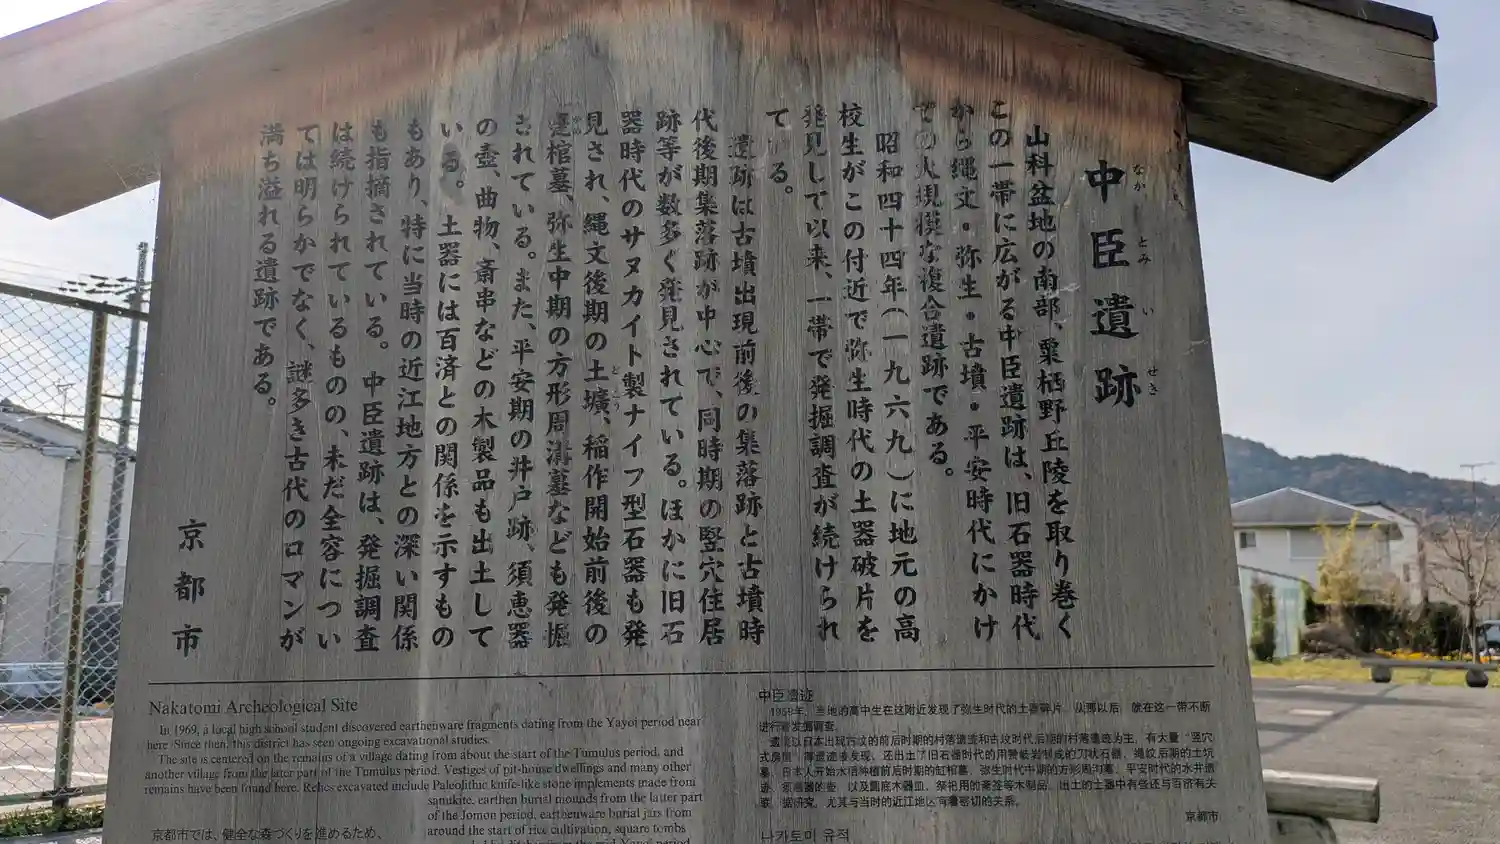 中臣遺跡
なか とみ い せき
山科盆地の南部、栗栖野丘陵を取り巻く
この一帯に広がる中臣遺跡は、旧石器時代
から縄文・弥生・古墳・平安時代にかけ
ての大規模な複合遺跡である。
昭和四十四年(一九六九)に地元の高
校生がこの付近で弥生時代の土器破片を
発見して以来、一帯で発掘調査が続けられ
ている。
遺跡は古墳出現前後の集落跡と古墳時
代後期集落跡が中心で、同時期の竪穴住居
跡等が数多く発見されている。ほかに旧石
器時代のサヌカイト製ナイフ型石器も発
見され、縄文後期の土壙、稲作開始前後の
どこう
甕棺墓、弥生中期の方形周溝墓なども発掘
されている。また、平安期の井戸跡、須恵器
の壺、曲物、斎串などの木製品も出土して
いる。土器には百済との関係を示すもの
もあり、特に当時の近江地方との深い関係
も指摘されている。中臣遺跡は、発掘調査
は続けられているものの、未だ全容につい
ては明らかでなく、謎多き古代のロマンが
満ち溢れる遺跡である。
京都市
Nakatomi Archeological Site
In 1969, a local high school student discovered earthenware fragments dating from the Yayoi period near
here. Since then, this district has seen ongoing excavational studies.
The site is centered on the remains of a village dating from about the start of the Tumulus period, and
another village from the later part of the Tumulus period. Vestiges of pit-house dwellings and many other
remains have been found here. Relics excavated include Paleolithic knife-like stone implements made from
sanukite, earthen burial mounds from the latter part
of the Jomon period, earthenware burial jars from
around the start of rice cultivation, square tombs
京都市では、健全な森づくりを進めるため、
中臣遗迹
1969年，当地的高中生在这附近发现了弥生时代的土器碎片，从那以后，就在这一带不断
进行着发掘调查。
遗迹以日本出现古坟的前后时期的村落遗迹和古坟时代后期的村落遗迹为主，有大量“竖穴
式房屋”等遗迹被发现，还出土了旧石器时代的用赞岐岩制成的刀状石器，绳纹后期的土坑
墓，日本人开始水稻种植前后时期的缸棺墓，弥生时代中期的方形周沟墓，平安时代的水井遗
迹，须惠器的壶，以及圆底木器皿，祭祀用的斋签等木制品，出土的土器中有些还与百济有关
联，据研究，尤其与当时的近江地区有着密切的关系。
京都市
나카토미 유적